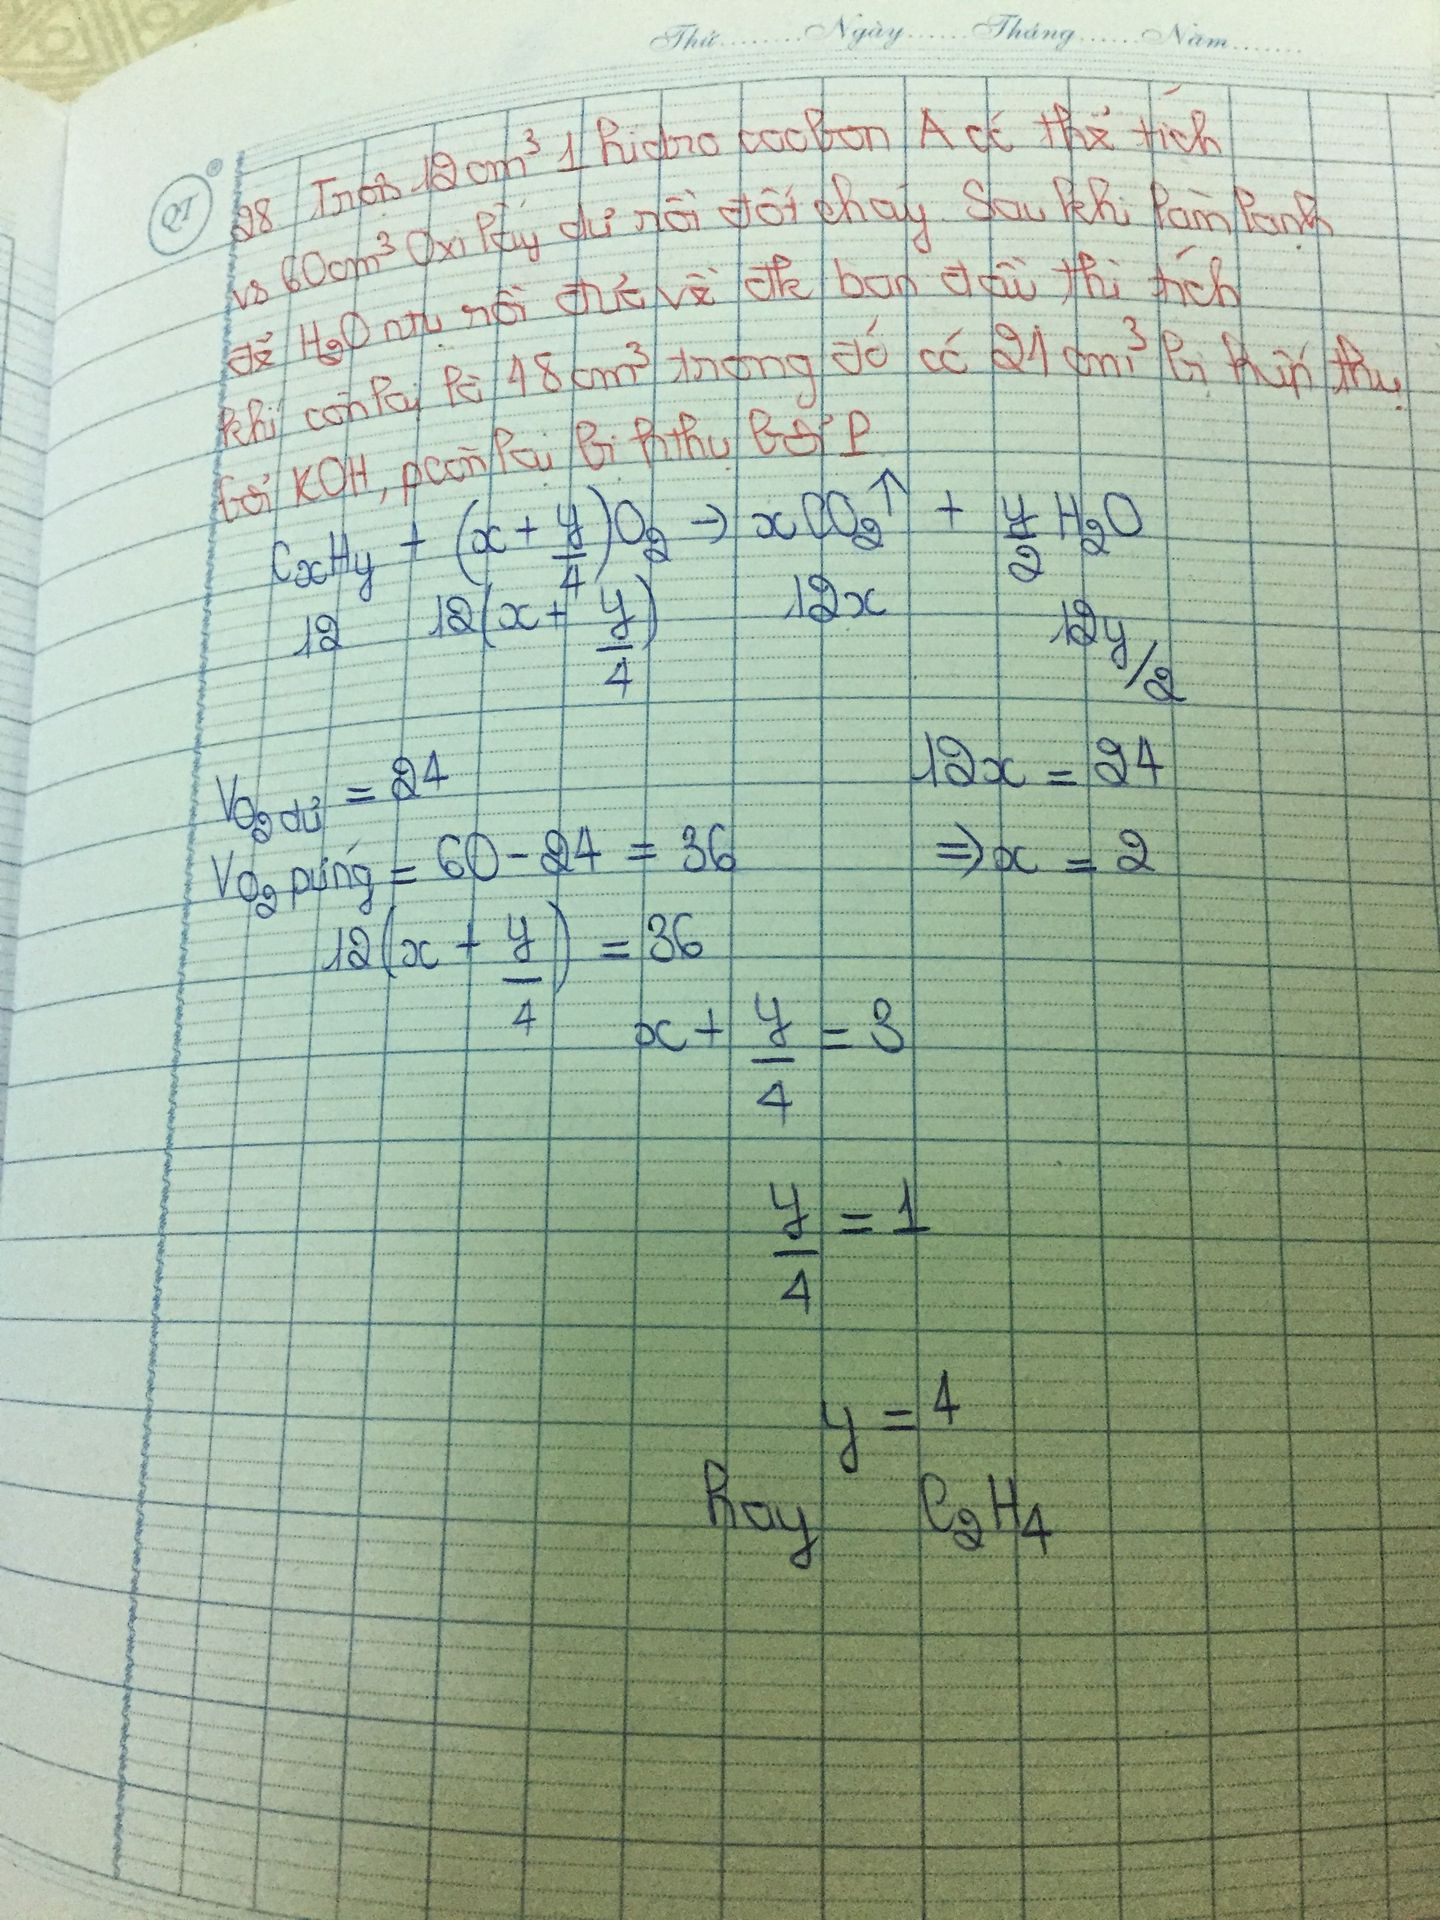 Thứ........Ngày......Tháng......Năm.......
QT
28 Trộn 12cm³ 1 hidro cacbon A có thể tích
vs 60cm³ Oxi lấy dư rồi đốt cháy. Sau khi làm lạnh
để H₂O ntụ rồi đưa về đk ban đầu thì tích
khí còn lại là 48cm³ trong đó có 24cm³ bị hấp thụ
bởi KOH, pcòn lại bị hthụ bởi P
CxHy + (x + y/4)O₂ → xCO₂↑ + y/2 H₂O
12 12(x + y/4) 12x 12y/2
VO₂ dư = 24 12x = 24
VO₂ pứng = 60 - 24 = 36 ⇒ x = 2
12(x + y/4) = 36
x + y/4 = 3
y/4 = 1
y = 4
hay C₂H₄